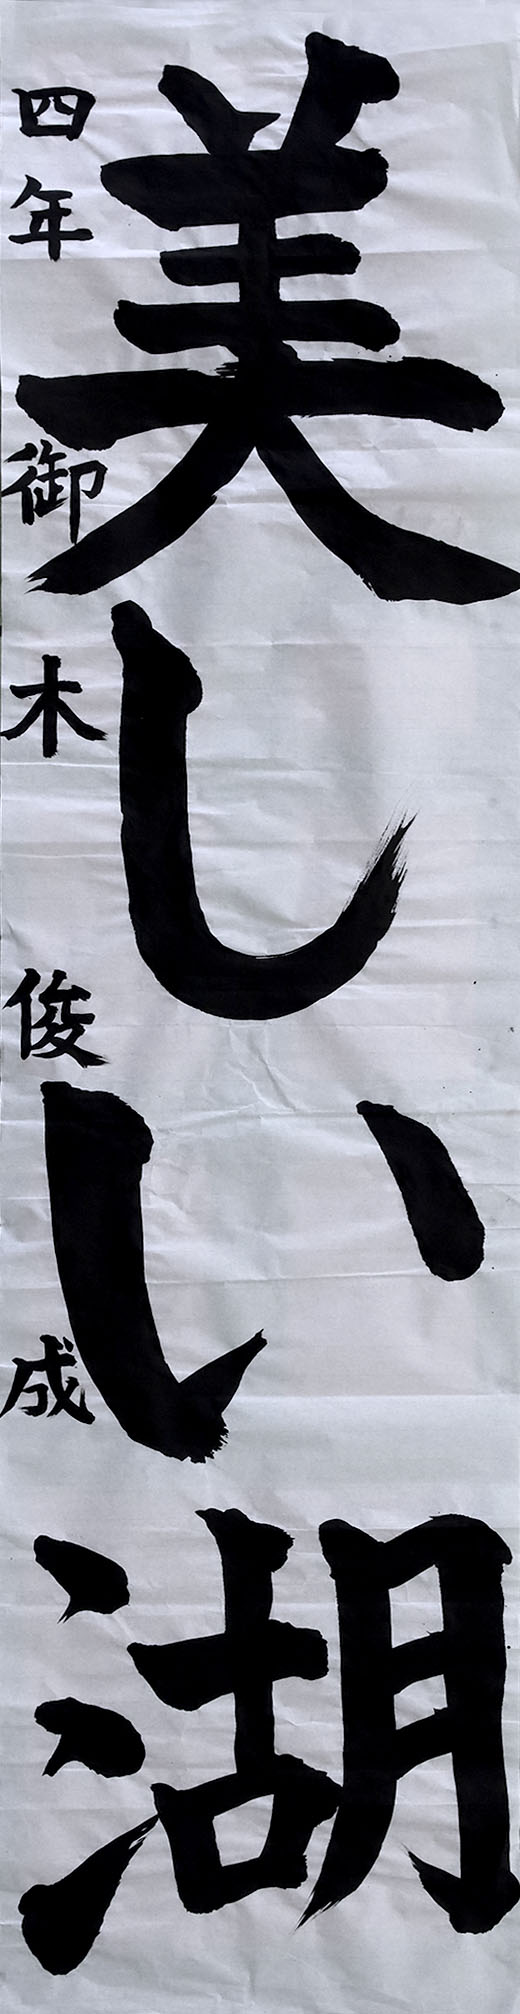 美しい湖
四年 御木 俊成